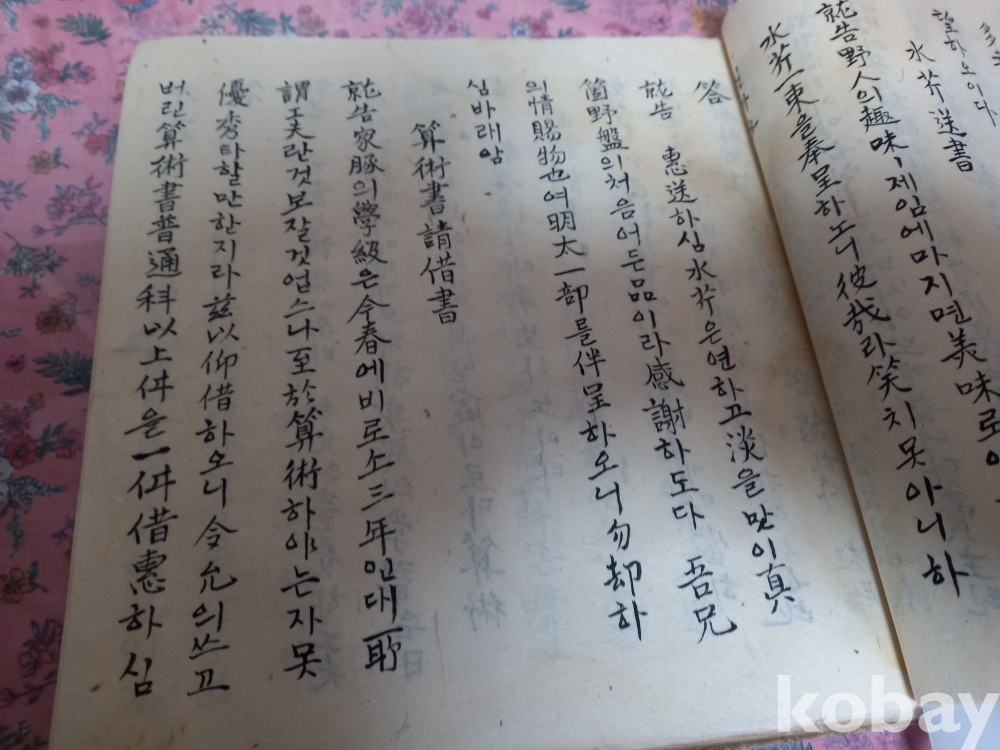 望하오이다
水芥送書
就告野人의趣味、제임에마지면美味로
水芥一束을奉呈하노니彼哉라笑치못아니하
答
就告 惠送하심水芥은연하고淡을맛이真
箇野盤의처음어든品이라感謝하도다 吾兄
의情賜物也여明太一部를伴呈하오니勿却하
심바래암
算術書請借書
就告家豚의學級은今春에비로소三年인대所
謂工夫란것보잘것업스나至於算術하야는자못
優秀타할만한지라玆以仰借하오니令允의쓰고
버린算術書普通科以上件을一件借惠하심
kobay